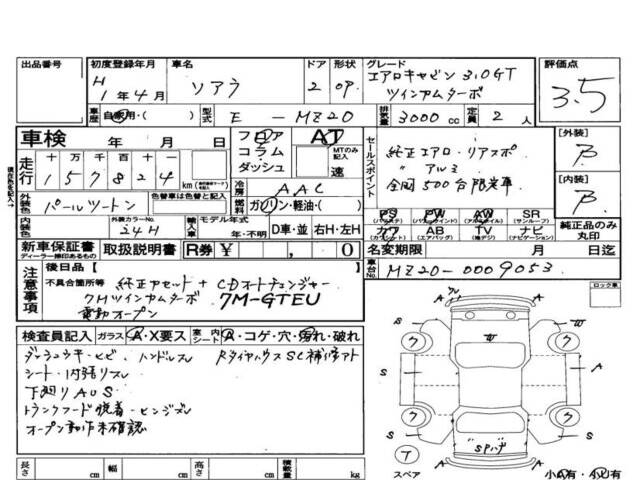 出品番号 初度登録年月 車名 ドア 形状 グレード 評価点
H 1年4月 ソアラ 2 OP. エアロキャビン 3.0GT
ツインカムターボ
3.5
車歴 自家用・( ) 型式 E - MZ20 排気量 3000cc 定員 2人
車検 年 月 日 フロア コラム ダッシュ AT MTのみ記入 速
セールスポイント 純正エアロ・リアスポ
〃 アルミ
全国500台限定車
[外装] B
[内装] B
走行 十万千百十一
157824 km
冷房 AAC
燃料 ガソリン・軽油・( )
外装色 パールツートン 色替えの場合 色替と記入
内装色 外装カラーNo. 24H 輸入車 モデル年式 年・不明 D車・並 右H・左H
PS AW SR
PW
カワ AB TV ナビ 純正品のみ丸印
新車保証書 取扱説明書 R券 ¥ , 0 名変期限 月 日迄
ディーラー捺印あるもの
車台No. MZ20-0009053
注意事項 後日品【 】
不具合箇所等 純正アセット + CDオートチェンジャー
7Mツインカムターボ 7M-GTEU
電動オープン
ロック車
検査員記入 ガラス A・X要ス 室内 シート A・コゲ・穴・汚れ・破れ
ダッシュウキ・ヒビ、ハンドルスレ
シート・内張リスレ
下廻リAUS
トランクフード脱着・ヒンジズレ
オープン動作未確認
長さ cm 幅 cm 高さ cm 積載量 kg
W A S W A
ウ ウ ウ ウ
SPハゲ
T
スペア
小A有・小U有